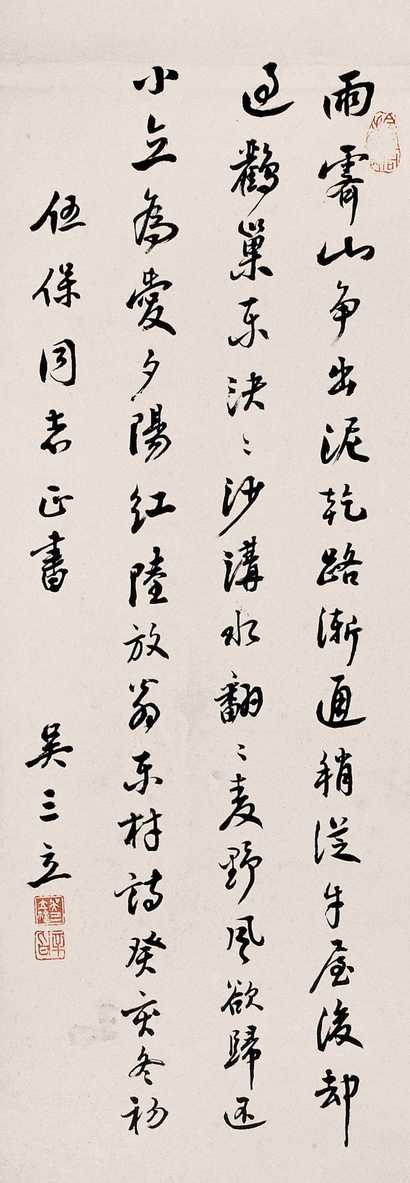 雨霽山争出泥乾路漸通稍從牛屋後却
過鸛巢东決〻沙溝水翻〻麦野風欲歸还
小立為愛夕陽红陸放翁东村詩癸亥冬初
伍保同志正書
吴三立